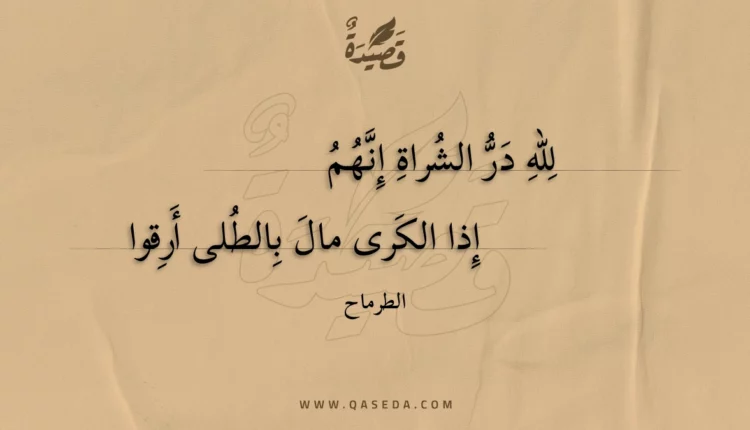 قَصِيدَةٌ
لِلّهِ دَرُّ الشُراةِ إِنَّهُمُ
إِذا الكَرَى مالَ بِالطُلى أَرِقوا
الطرماح
WWW.QASEDA.COM